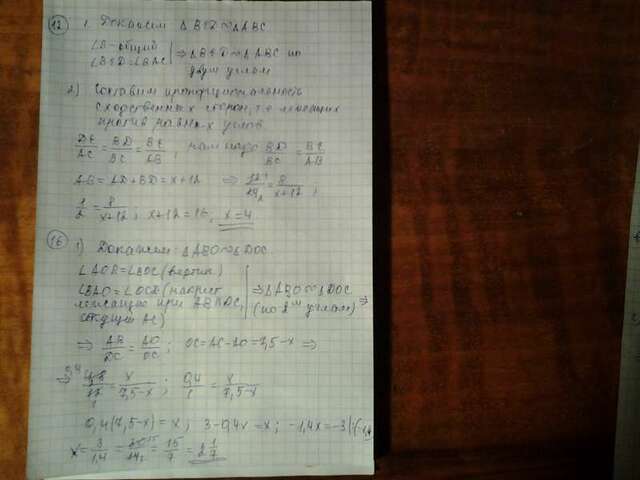 12 1. Докажем ΔBED ∾ ΔABC
∠B - общий
∠BED = ∠BAC ⇒ ΔBED ∾ ΔABC по двум углам
2) Составим пропорциональность
сходственных сторон, т.е лежащих
против равных углов
DE/AC = BD/BC = BE/AB ; нам надо BD/BC = BE/AB
AB = AD + BD = x+12 ⇒ 12/24 = 8/x+12 ;
1/2 = 8/x+12 ; x+12 = 16; x = 4
16 1) Докажем: ΔABO ∾ ΔDOC
∠AOB = ∠DOC (вертик)
∠BAO = ∠OCD (накрест
лежащие при AB∥DC,
секущей AC) ⇒ ΔABO ∾ ΔDOC (по 2м углам) ⇒
⇒ AB/DC = AO/OC ; OC = AC - AO = 7,5 - x ⇒
x/7,5-x ; 0,4/1 = x/7,5-x
0,4(7,5-x) = x ; 3-0,4x = x ; -1,4x = -3 |:(-1,4)
x = 3/1,4 = 15/7 = 2 1/7